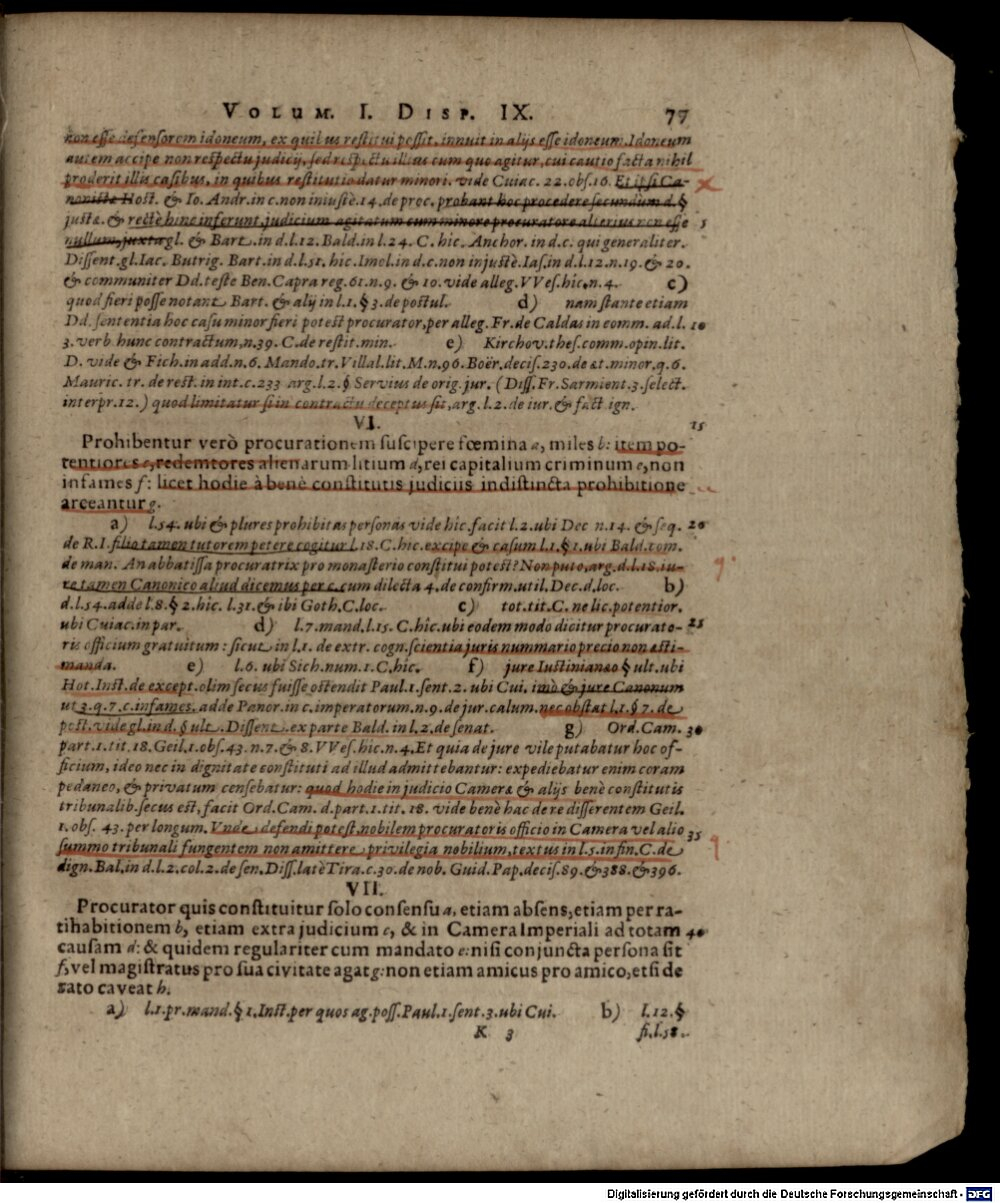 VOLUM. I. DISP. IX. 77
non esse defensorem idoneum, ex quibus restitui possit, innuit in alijs esse idoneum. Idoneum
autem accipe non respectu judicij, sed respectu illius cum quo agitur, cui cautio facta nihil
proderit illis casibus, in quibus restitutio datur minori. vide Cuiac. 22. obs. 16. Et ipsi Ca-
nonistæ Host. & Io. Andr. in c. non iniustè. 14. de proc. probant hoc procedere secundum d. §
juste. & rectè hinc inferunt, judicium agitatum cum minore procuratore alterius non esse 5
nullum, juxta gl. & Bart. in d. l. 12. Bald. in l. 24. C. hic. Anchor. in d. c. qui generaliter.
Dissent. gl. Iac. Butrig. Bart. in d. l. 51. hic. Imol. in d. c. non injustè. Ias. in d. l. 12. n. 19. & 20.
& communiter Dd. teste Ben. Capra reg. 61. n. 9. & 10. vide alleg. VVes. hic. n. 4. c)
quod fieri posse notant Bart. & alij in l. 1. § 3. de postul. d) nam stante etiam
Dd. sententia hoc casu minor fieri potest procurator, per alleg. Fr. de Caldas in comm. ad. l. 10
3. verb hunc contractum, n. 39. C. de restit. min. e) Kirchov. thes. comm. opin. lit.
D. vide & Fich. in add. n. 6. Mando. tr. Villal. lit. M. n. 96. Boër. decis. 230. de æt. minor. q. 6.
Mauric. tr. de rest. in int. c. 233 arg. l. 2. § Servius de orig. jur. (Diss. Fr. Sarmient. 3. select.
interpr. 12.) quod limitatur si in contractu deceptus sit, arg. l. 2. de iur. & fact ign.
VI. 15
Prohibentur verò procurationem suscipere fœmina a, miles b: item po-
tentiores c, redemtores alienarum litium d, rei capitalium criminum e, non
infames f: licet hodie à benè constitutis judiciis indistincta prohibitione
arceantur g.
a) l. 54. ubi & plures prohibitas personas vide hîc. facit l. 2. ubi Dec n. 14. & seq. 20
de R. I. filio tamen tutorem petere cogitur l. 18. C. hic. excipe & casum l. 1. § 1. ubi Bald. tom.
de man. An abbatissa procuratrix pro monasterio constitui potest? Non puto, arg. d. l. 18. iu-
re tamen Canonico aliud dicemus per c. cum dilecta 4. de confirm. util. Dec. d. loc. b)
d. l. 54. adde l. 8. § 2. hic. l. 31. & ibi Goth. C. loc. c) tot. tit. C. ne lic. potentior.
ubi Cuiac. in par. d) l. 7. mand. l. 15. C. hîc. ubi eodem modo dicitur procurato- 25
ris officium gratuitum: sicut in l. 1. de extr. cogn. scientia juris nummario precio non æsti-
manda. e) l. 6. ubi Sich. num. 1. C. hic. f) jure Iustinianæo § ult. ubi
Hot. Inst. de except. olim secus fuisse ostendit Paul. 1. sent. 2. ubi Cui. imò & jure Canonum
ut 3. q. 7. c. infames. adde Panor. in c. imperatorum. n. 9. de jur. calum. nec obstat l. 1. § 7. de
post. vide gl. in d. § ult. Dissent. ex parte Bald. in l. 2. de senat. g) Ord. Cam. 30
part. 1. tit. 18. Geil. 1. obs. 43. n. 7. & 8. VVes. hic. n. 4. Et quia de jure vile putabatur hoc of-
ficium, ideo nec in dignitate constituti ad illud admittebantur: expediebatur enim coram
pedaneo, & privatum censebatur: quod hodie in judicio Cameræ & alijs benè constitutis
tribunalib. secus est, facit Ord. Cam. d. part. 1. tit. 18. vide benè hac de re disserentem Geil.
1. obs. 43. per longum. Unde defendi potest, nobilem procuratoris officio in Camera vel alio 35
summo tribunali fungentem non amittere privilegia nobilium, textus in l. 5. in fin. C. de
dign. Bal. in d. l. 2. col. 2. de sen. Diss. latè Tira. c. 30. de nob. Guid. Pap. decis. 89. & 388. & 396.
VII.
Procurator quis constituitur solo consensu a, etiam absens, etiam per ra-
tihabitionem b, etiam extra judicium c, & in Camera Imperiali ad totam 40
causam d: & quidem regulariter cum mandato e: nisi conjuncta persona sit
f, vel magistratus pro sua civitate agat g: non etiam amicus pro amico, etsi de
rato caveat h.
a) l. 1. pr. mand. § 1. Inst. per quos ag. poss. Paul. 1. sent. 3. ubi Cui. b) l. 12. §
K 3 fi. l. 58.
Digitalisierung gefördert durch die Deutsche Forschungsgemeinschaft - DFG